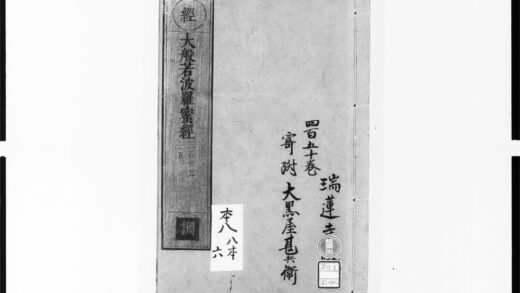 瑞蓮寺
四百五十巻
寄附 大黒屋甚兵衛
經
大般若波羅蜜經
調
本八
八本
六